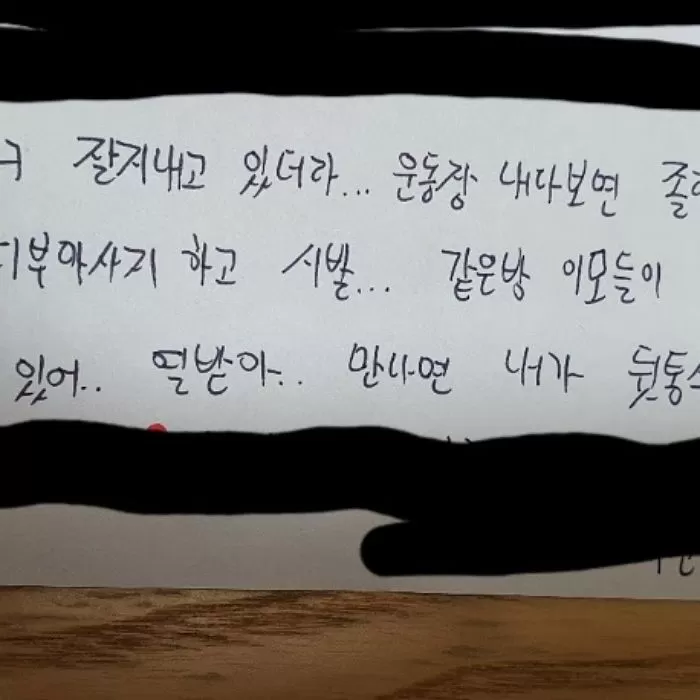 잘지내고 있더라... 운동장 내다보면
부아사지 하고 시발... 같은방 이모들이
있어.. 열받아.. 만나면 내가